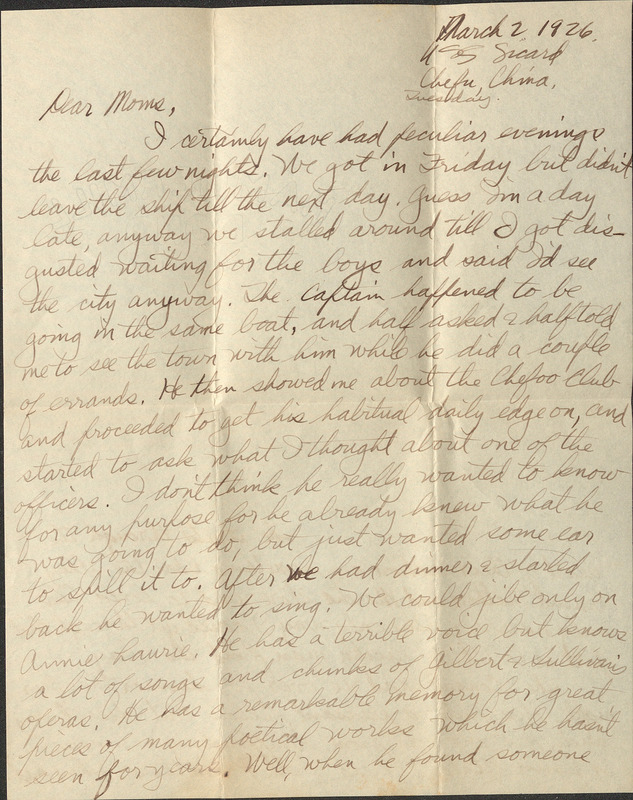 March 2, 1926.
USS Sicard
Chefu, China,
Tuesday.
Dear Moms,
I certainly have had peculiar evenings
the last few nights. We got in Friday but didn't
leave the ship till the next day. Guess I'm a day
late, anyway we stalled around till I got dis-
gusted waiting for the boys and said I'd see
the city anyway. The Captain happened to be
going in the same boat, and half asked & half told
me to see the town with him while he did a couple
of errands. He then showed me about the Chefoo Club
and proceeded to get his habitual daily edge on, and
started to ask what I thought about one of the
officers. I don't think he really wanted to know
for any purpose for he already knew what he
was going to do, but just wanted some ear
to spill it to. After we had dinner & started
back he wanted to sing. We could jibe only on
Annie Laurie. He has a terrible voice but knows
a lot of songs and chunks of Gilbert & Sullivan's
operas. He has a remarkable memory for great
pieces of many poetical works which he hasn't
seen for years. Well, when he found someone